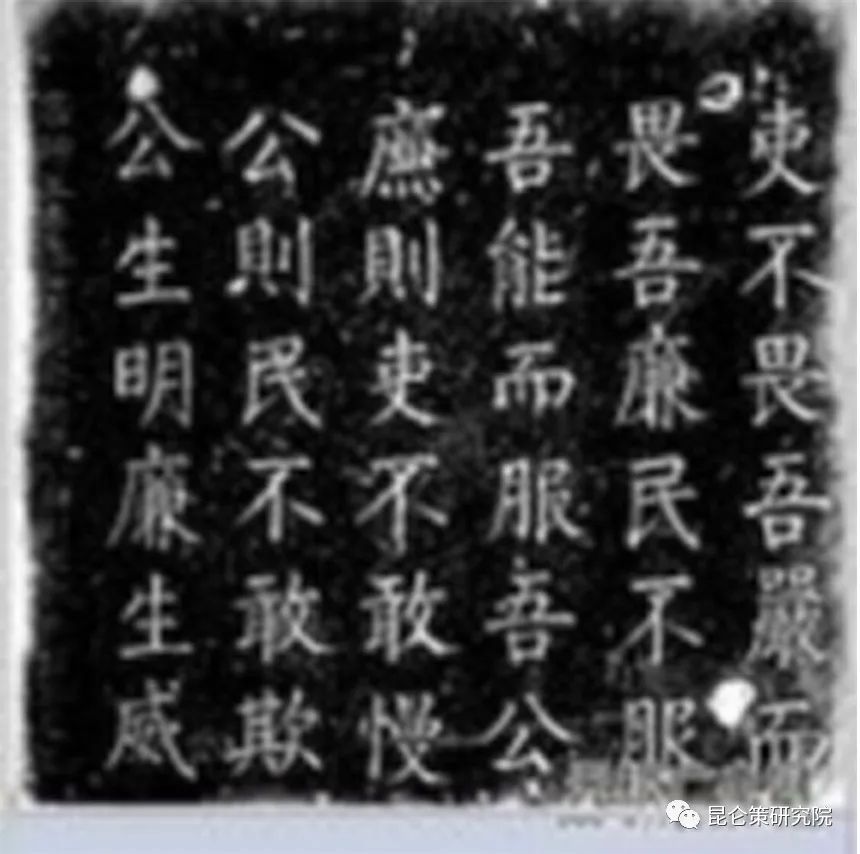 吏不畏吾嚴而
畏吾廉民不服
吾能而服吾公
廉則吏不敢慢
公則民不敢欺
公生明廉生威
昆仑策研究院